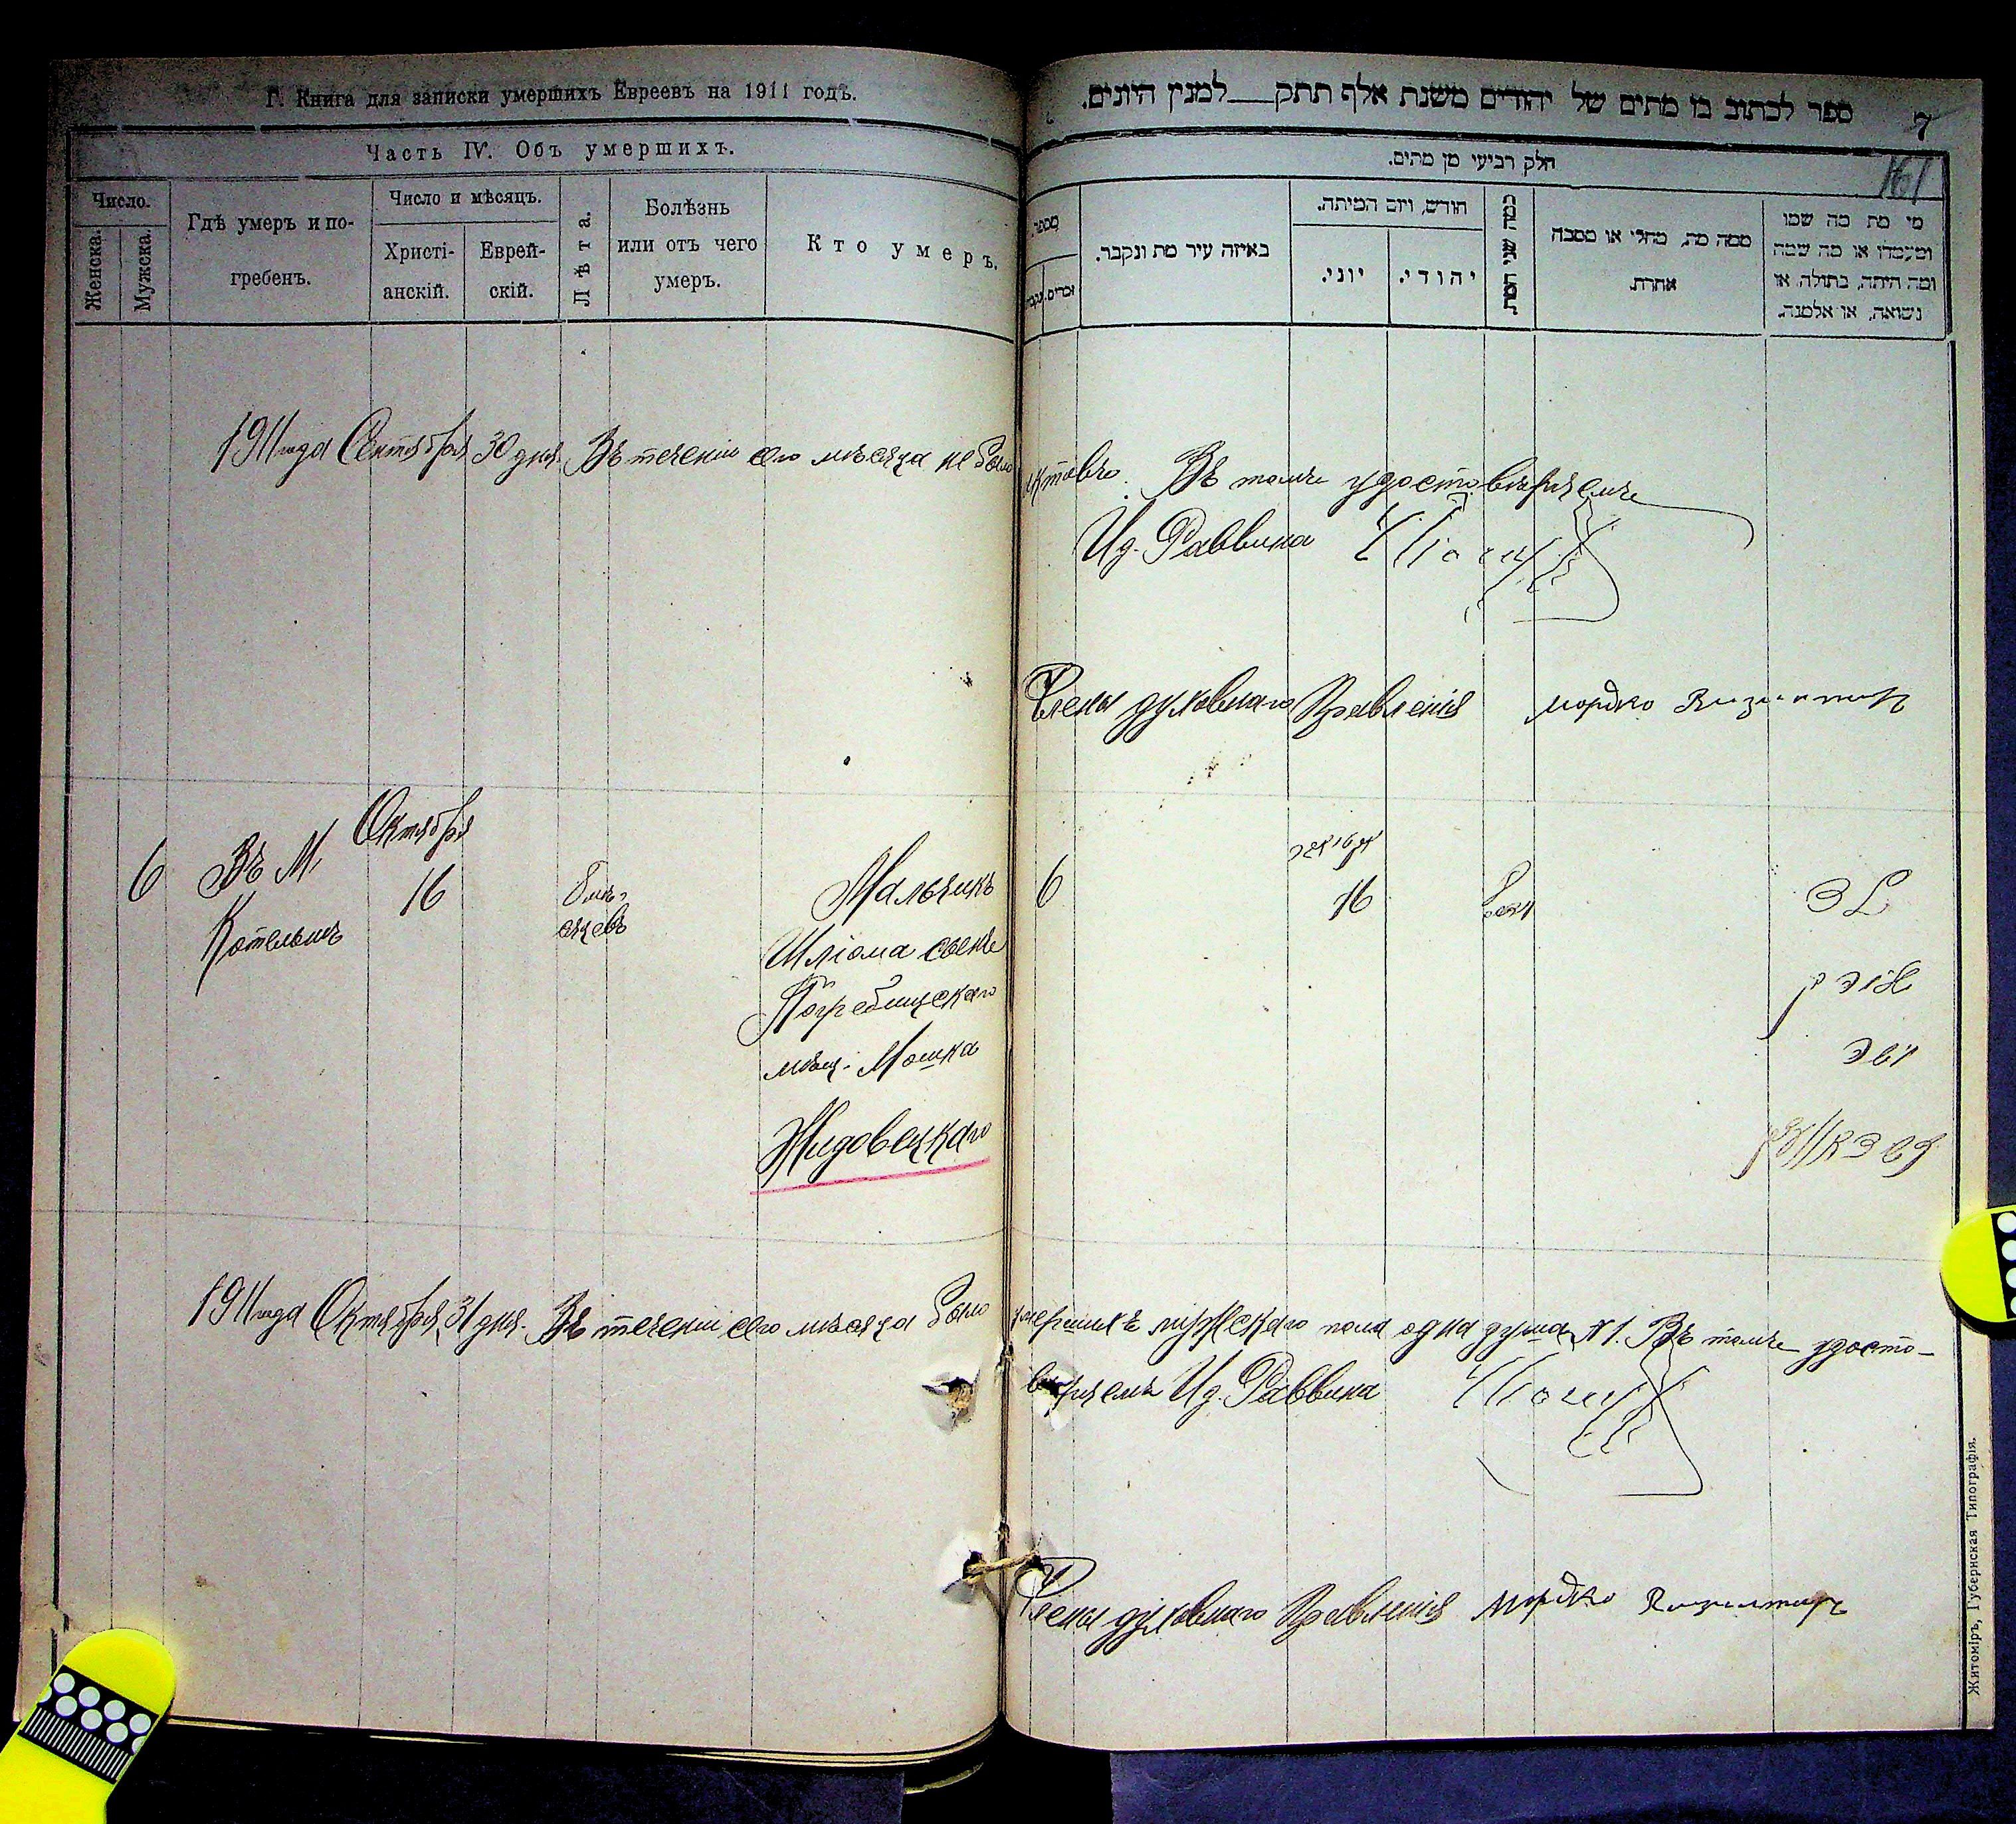 Г. Книга для записки умершихъ Евреевъ на 1911 годъ.
Часть IV. Объ умершихъ.
Число.
Женска.
Мужска.
Гдѣ умеръ и по-
гребенъ.
Число и мѣсяцъ.
Христі-
анскій.
Еврей-
скій.
Лѣта.
Болѣзнь
или отъ чего
умеръ.
Кто умеръ.
1911 года Сентября 30 дня. Въ теченіи сего мѣсяца не было
Октября
6 Въ М. 16
Котельнѣ
Мальчикъ
Шліома сынъ
Погребищскаго
мѣщ. Мошка
Жидовецкаго
1911 года Октября 31 дня. Въ теченіи сего мѣсяца было
ספר לכתוב בו מתים של יהודים משנת אלף תתק למנין היונים.
7
161
חלק רביעי מן מתים.
מספר.
זכרים.
נקבות
באיזה עיר מת ונקבר.
חודש, ויום המיתה.
יוני.
יהודי.
כמה שני המת
ממה מת, מחלי או מסבה
אחרת.
מי מת מה שמו
ומעמדו או מה שמה
ומה היתה, בתולה, או
נשואה, או אלמנה.
Въ томъ удостовѣряемъ
Ид. Раввина
Члены духовнаго Правленія Мордко
6 16
умершихъ мужскаго пола одна душа № 1. Въ томъ удосто-
вѣряемъ Ид. Раввина
Члены духовнаго Правленія Мордко
Житоміръ, Губернская Типографія.